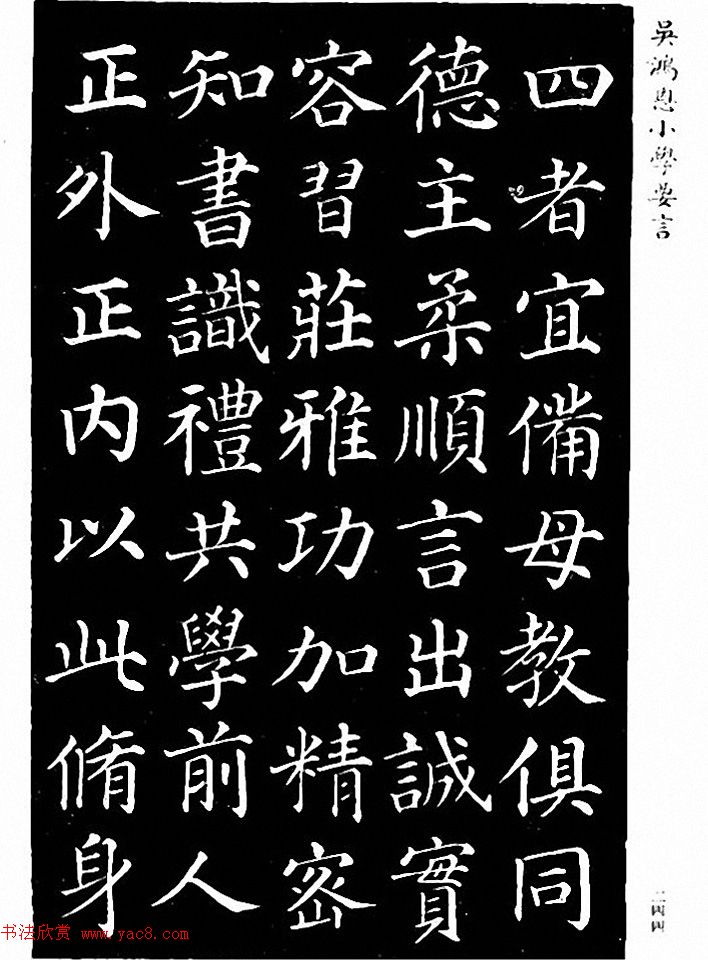 吳鴻恩小學要言
四者宜俻母教俱同
德主柔順言出誠實
容習莊雅功加精密
知書識禮共學前人
正外正内以此脩身
二四四
书法欣赏 www.yac8.com